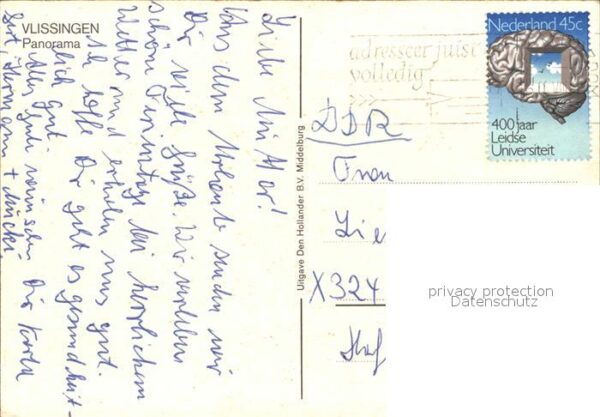 VLISSINGEN
Panorama
Liebe Mutter!
Aus dem Urlaub senden wir
Dir viele Grüße. Wir verleben
schöne Ferientage bei herrlichem
Wetter und erholen uns gut.
Ich hoffe Dir geht es gesundheit-
lich gut.
Alles Gute wünschen Dir
Hermann +
Uitgave Den Hollander B.V. Middelburg
adresseer juist
volledig
Nederland 45c
400 jaar
Leidse
Universiteit
DDR
Frau
Lie
X324
privacy protection
Datenschutz